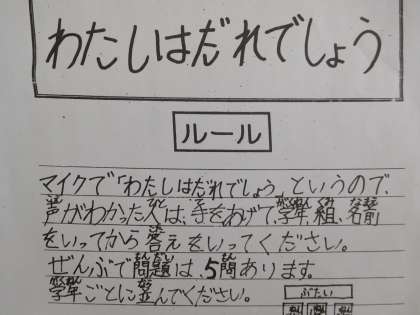 わたしはだれでしょう
ルール
マイクで「わたしはだれでしょう」というので、
声がわかった人は、手をあげて、学年、組、名前
をいってから答えをいってください。
ぜんぶで問題は、5問あります。
学年ごとに並んでください。
ぶたい